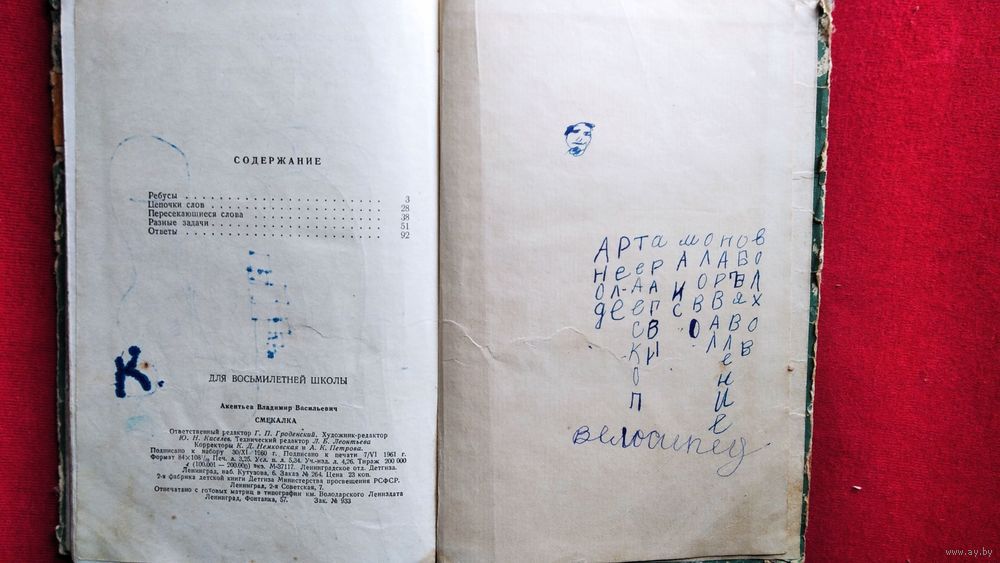 СОДЕРЖАНИЕ
Ребусы . . . . . . . . . . . . . . . . . . 3
Цепочки слов . . . . . . . . . . . . . . . . . . 28
Пересекающиеся слова . . . . . . . . . . . . . . . . . . 38
Разные задачи . . . . . . . . . . . . . . . . . . 51
Ответы . . . . . . . . . . . . . . . . . . 92
К.
ДЛЯ ВОСЬМИЛЕТНЕЙ ШКОЛЫ
Акентьев Владимир Васильевич
СМЕКАЛКА
Ответственный редактор Г. П. Гроденский. Художник-редактор
Ю. Н. Киселев. Технический редактор Л. Б. Леонтьева
Корректоры К. Д. Немковская и А. К. Петрова.
Подписано к набору 30/XI 1960 г. Подписано к печати 7/VI 1961 г.
Формат 84×108 1/32 Печ. л. 3,25. Усл. п. л. 5,34. Уч.-изд. л. 4,26. Тираж 200 000
(100.001 — 200.000) экз. М-37117. Ленинградское отд. Детгиза.
Ленинград, наб. Кутузова, 6. Заказ № 264. Цена 23 коп.
2-я фабрика детской книги Детгиза Министерства просвещения РСФСР.
Ленинград, 2-я Советская, 7.
Отпечатано с готовых матриц в типографии им. Володарского Лениздата
Ленинград, Фонтанка, 57. Зак. № 933
АРТАМОНОВ
велосипед
www.ay.by